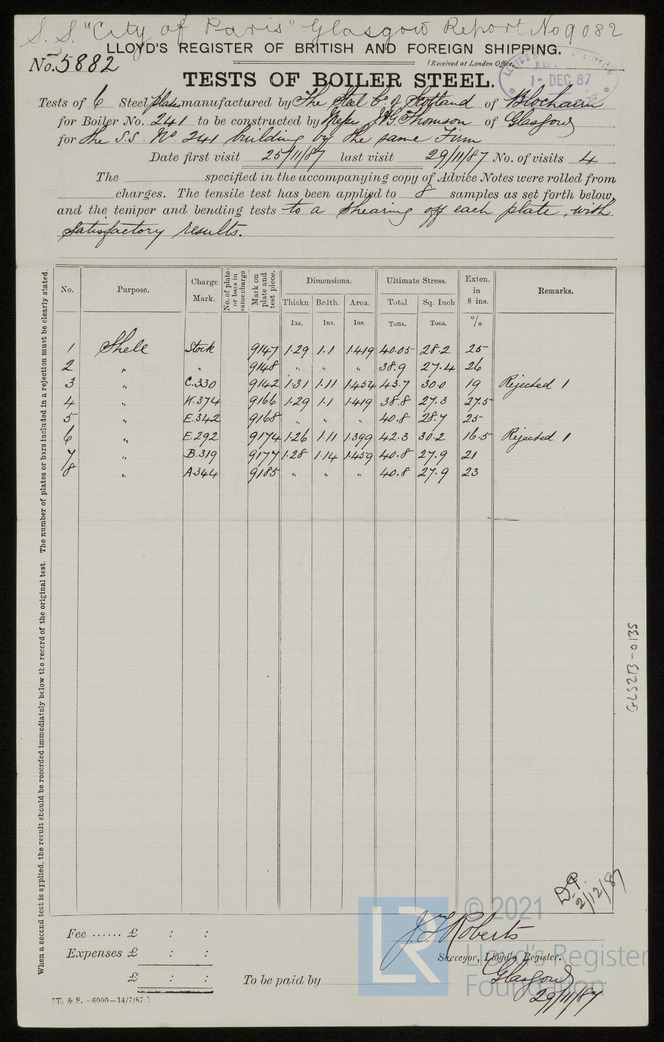 S.S. "City of Paris" Glasgow Report No 9082
LLOYD'S REGISTER OF BRITISH AND FOREIGN SHIPPING.
No. 5882
(Received at London Office
1- DEC 87
TESTS OF BOILER STEEL.
Tests of 6 Steel plates manufactured by The Steel Co of Scotland of Blochairn
for Boiler No. 241 to be constructed by Messrs J & G Thomson of Glasgow
for the S.S. No 241 building by the same Firm
Date first visit 25/11/87 last visit 29/11/87 No. of visits 4
The specified in the accompanying copy of Advice Notes were rolled from
charges. The tensile test has been applied to 8 samples as set forth below,
and the temper and bending tests to a shearing off each plate, with
satisfactory results.
When a second test is applied, the result should be recorded immediately below the record of the original test. The number of plates or bars included in a rejection must be clearly stated.
No. Purpose. Charge Mark. No. of plates or bars in same charge Mark on plate and test piece. Dimensions. Ultimate Stress. Exten. in 8 ins. Remarks.
Thickn Brdth. Area. Total Sq. Inch
Ins. Ins. Ins. Tons. Tons. %
1 Shell Stock 9147 1.29 1.1 1.419 40.05 28.2 25
2 " " 9148 " " " 38.9 27.4 26
3 " C.330 9142 1.31 1.11 1.454 43.7 30.0 19 Rejected 1
4 " K.374 9166 1.29 1.1 1.419 38.8 27.3 27.5
5 " E.342 9168 " " " 40.8 28.7 25
6 " E.292 9174 1.26 1.11 1.399 42.3 30.2 16.5 Rejected 1
7 " B.319 9177 1.28 1.14 1.459 40.8 27.9 21
8 " A344 9185 " " " 40.8 27.9 23
GLS273-0135
2/12/87
Fee ...... £ : :
Expenses £ : :
£ : :
To be paid by
J. Roberts
Surveyor, Lloyd's Register.
Glasgow
29/11/87
[T. & S. -6000-14/7/87.]
LR
© 2021
Lloyd's Register
Foundation